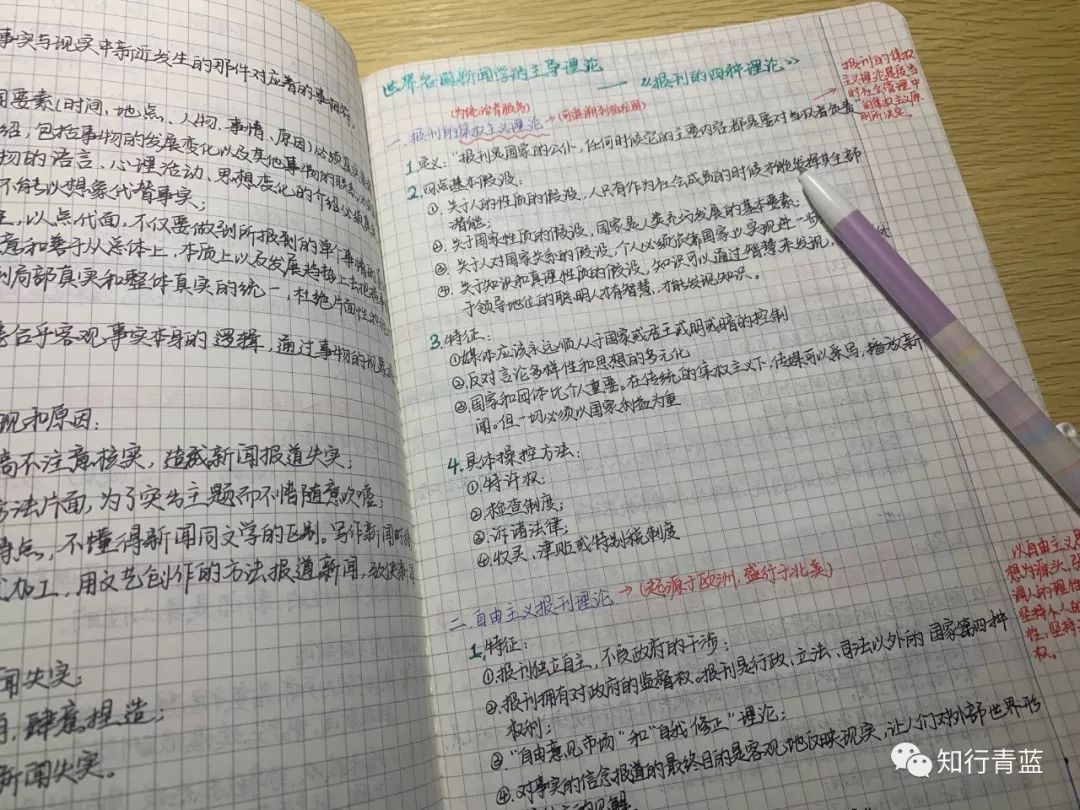 事实与现实中新近发生的那件对应着的事相符,
要素(时间、地点、人物、事情、原因)必须真实
绍,包括事物的发展变化以及其他事物的联系,
物的语言、心理活动、思想变化的介绍必须真实
不能以想象代替事实;
以点代面,不仅要做到所报到的单个事情
意和善于从总体上,本质上以及发展趋势上去把握
到局部真实和整体真实的统一,杜绝片面性
合乎客观事实本身的逻辑,通过事物的
现和原因:
高不注意核实,造成新闻报道失实;
方法片面,为了突出主题而不惜随意吹嘘;
特点,不懂得新闻同文学的区别。写作新闻时
加工,用文艺创作的方法报道新闻,致使
闻失实;
肆意捏造;
新闻失实。
世界各国新闻学的主导理论
——《报刊的四种理论》
(为统治者服务)
一.报刊的集权主义理论→(可追溯到柏拉图)
报刊的集权
主义理论是后当
时社会管理中
的集权主义原
则所决定。
1.定义:“报刊是国家的公仆,任何时候它的主要内容都是要对当权者负责
2.四点基本假设:
①.关于人的性质的假设,人只有作为社会成员的时候才能发挥其全部
潜能;
②.关于国家性质的假设,国家是人类充分发展的基本要素;
③.关于人对国家关系的假设,个人必须依靠国家以实现进一步
④.关于知识和真理性质的假设,知识可以通过智慧来发现,
于领导地位的聪明人才有智慧,才能发现知识。
3.特征:
①媒体应该永远顺从于国家或君主或明或暗的控制
②.反对言论多样性和思想的多元化
③国家和团体比个人重要。在传统的集权主义下,传媒可以采写,播放新
闻。但一切必须以国家利益为重
4.具体操控方法:
①.特许权;
②.检查制度;
③.诉诸法律;
④收买、津贴或特别税制度
二.自由主义报刊理论→(起源于欧洲,盛行于北美)
以自由主义思
想为源头,强
调人的理性
坚持个人的
性,坚持
权。
1.特征:
①报刊独立自主,不受政府的干涉;
②.报刊拥有对政府的监督权。报刊是行政、立法、司法以外的国家第四种
权利;
③.“自由意见市场”和“自我修正”理论;
④.对事实的信念报道的最终目的是客观地反映现实,让人们对外部世界形
知行青蓝